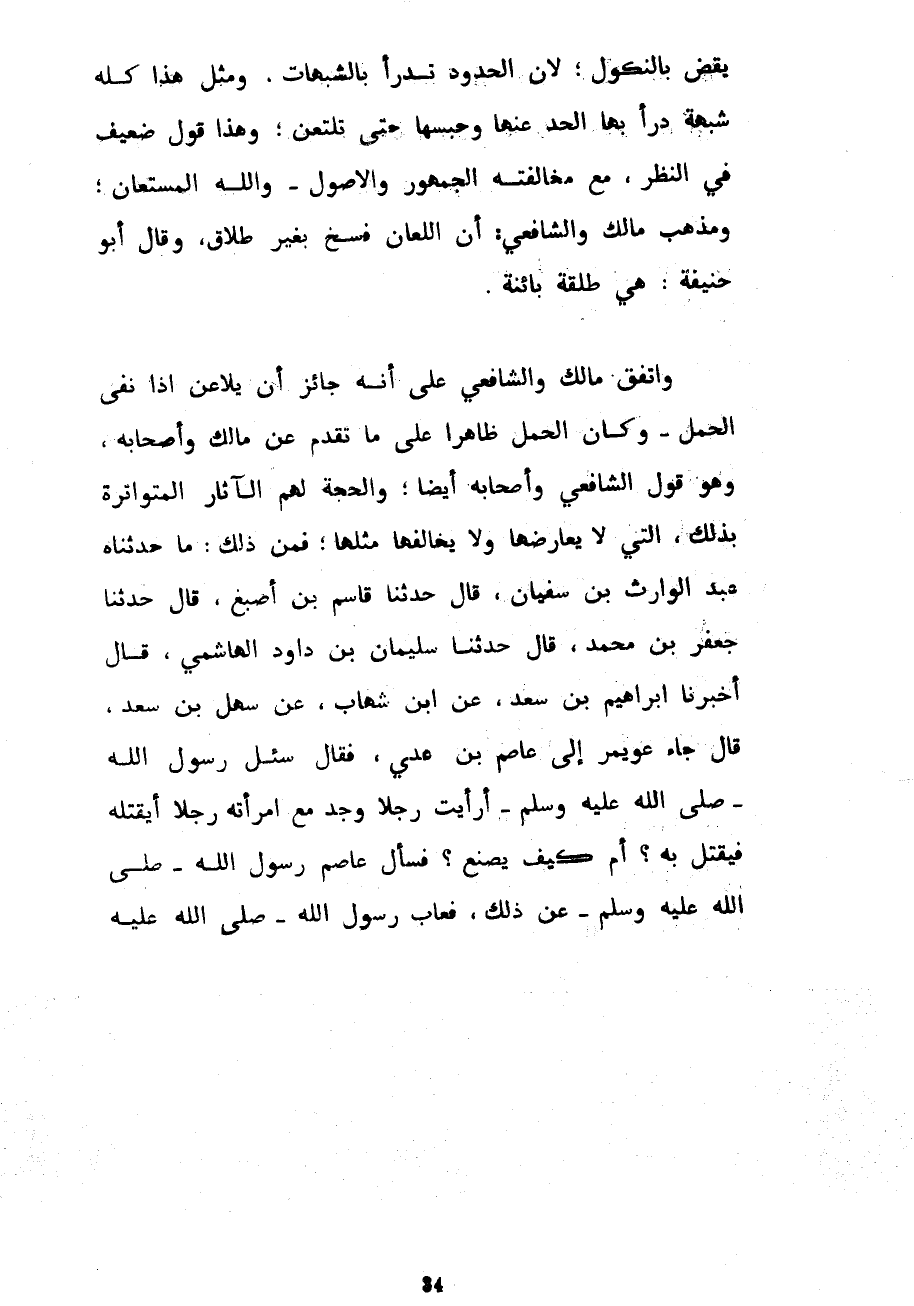 يقض بالنكول ؛ لان الحدود تـدرأ بالشبهات . ومثل هذا كـله
شبهة درأ بها الحد عنها وحبسها حتى تلتعن ؛ وهذا قول ضعيف
في النظر ، مع مخالفتـه الجمهور والاصول ـ واللـه المستعان ؛
ومذهب مالك والشافعي: أن اللعان فسخ بغير طلاق، وقال أبو
حنيفة : هي طلقة بائنة .
واتفق مالك والشافعي على أنـه جائز أن يلاعن اذا نفى
الحمل ـ وكـان الحمل ظاهرا على ما تقدم عن مالك وأصحابه ،
وهو قول الشافعي وأصحابه أيضا ؛ والحجة لهم الـآثار المتواترة
بذلك ، التي لا يعارضها ولا يخالفها مثلها ؛ فمن ذلك : ما حدثناه
عبد الوارث بن سفيان ، قال حدثنا قاسم بن أصبغ ، قال حدثنا
جعفر بن محمد ، قال حدثنـا سليمان بن داود الهاشمي ، قـال
أخبرنا ابراهيم بن سعد ، عن ابن شهاب ، عن سهل بن سعد ،
قال جاء عويمر إلى عاصم بن عدي ، فقال سئـل رسول اللـه
ـ صلى الله عليه وسلم ـ أرأيت رجلا وجد مع امرأته رجلا أيقتله
فيقتل به ؟ أم كيف يصنع ؟ فسأل عاصم رسول اللـه ـ صلـى
الله عليه وسلم ـ عن ذلك ، فعاب رسول الله ـ صلى الله عليـه
34